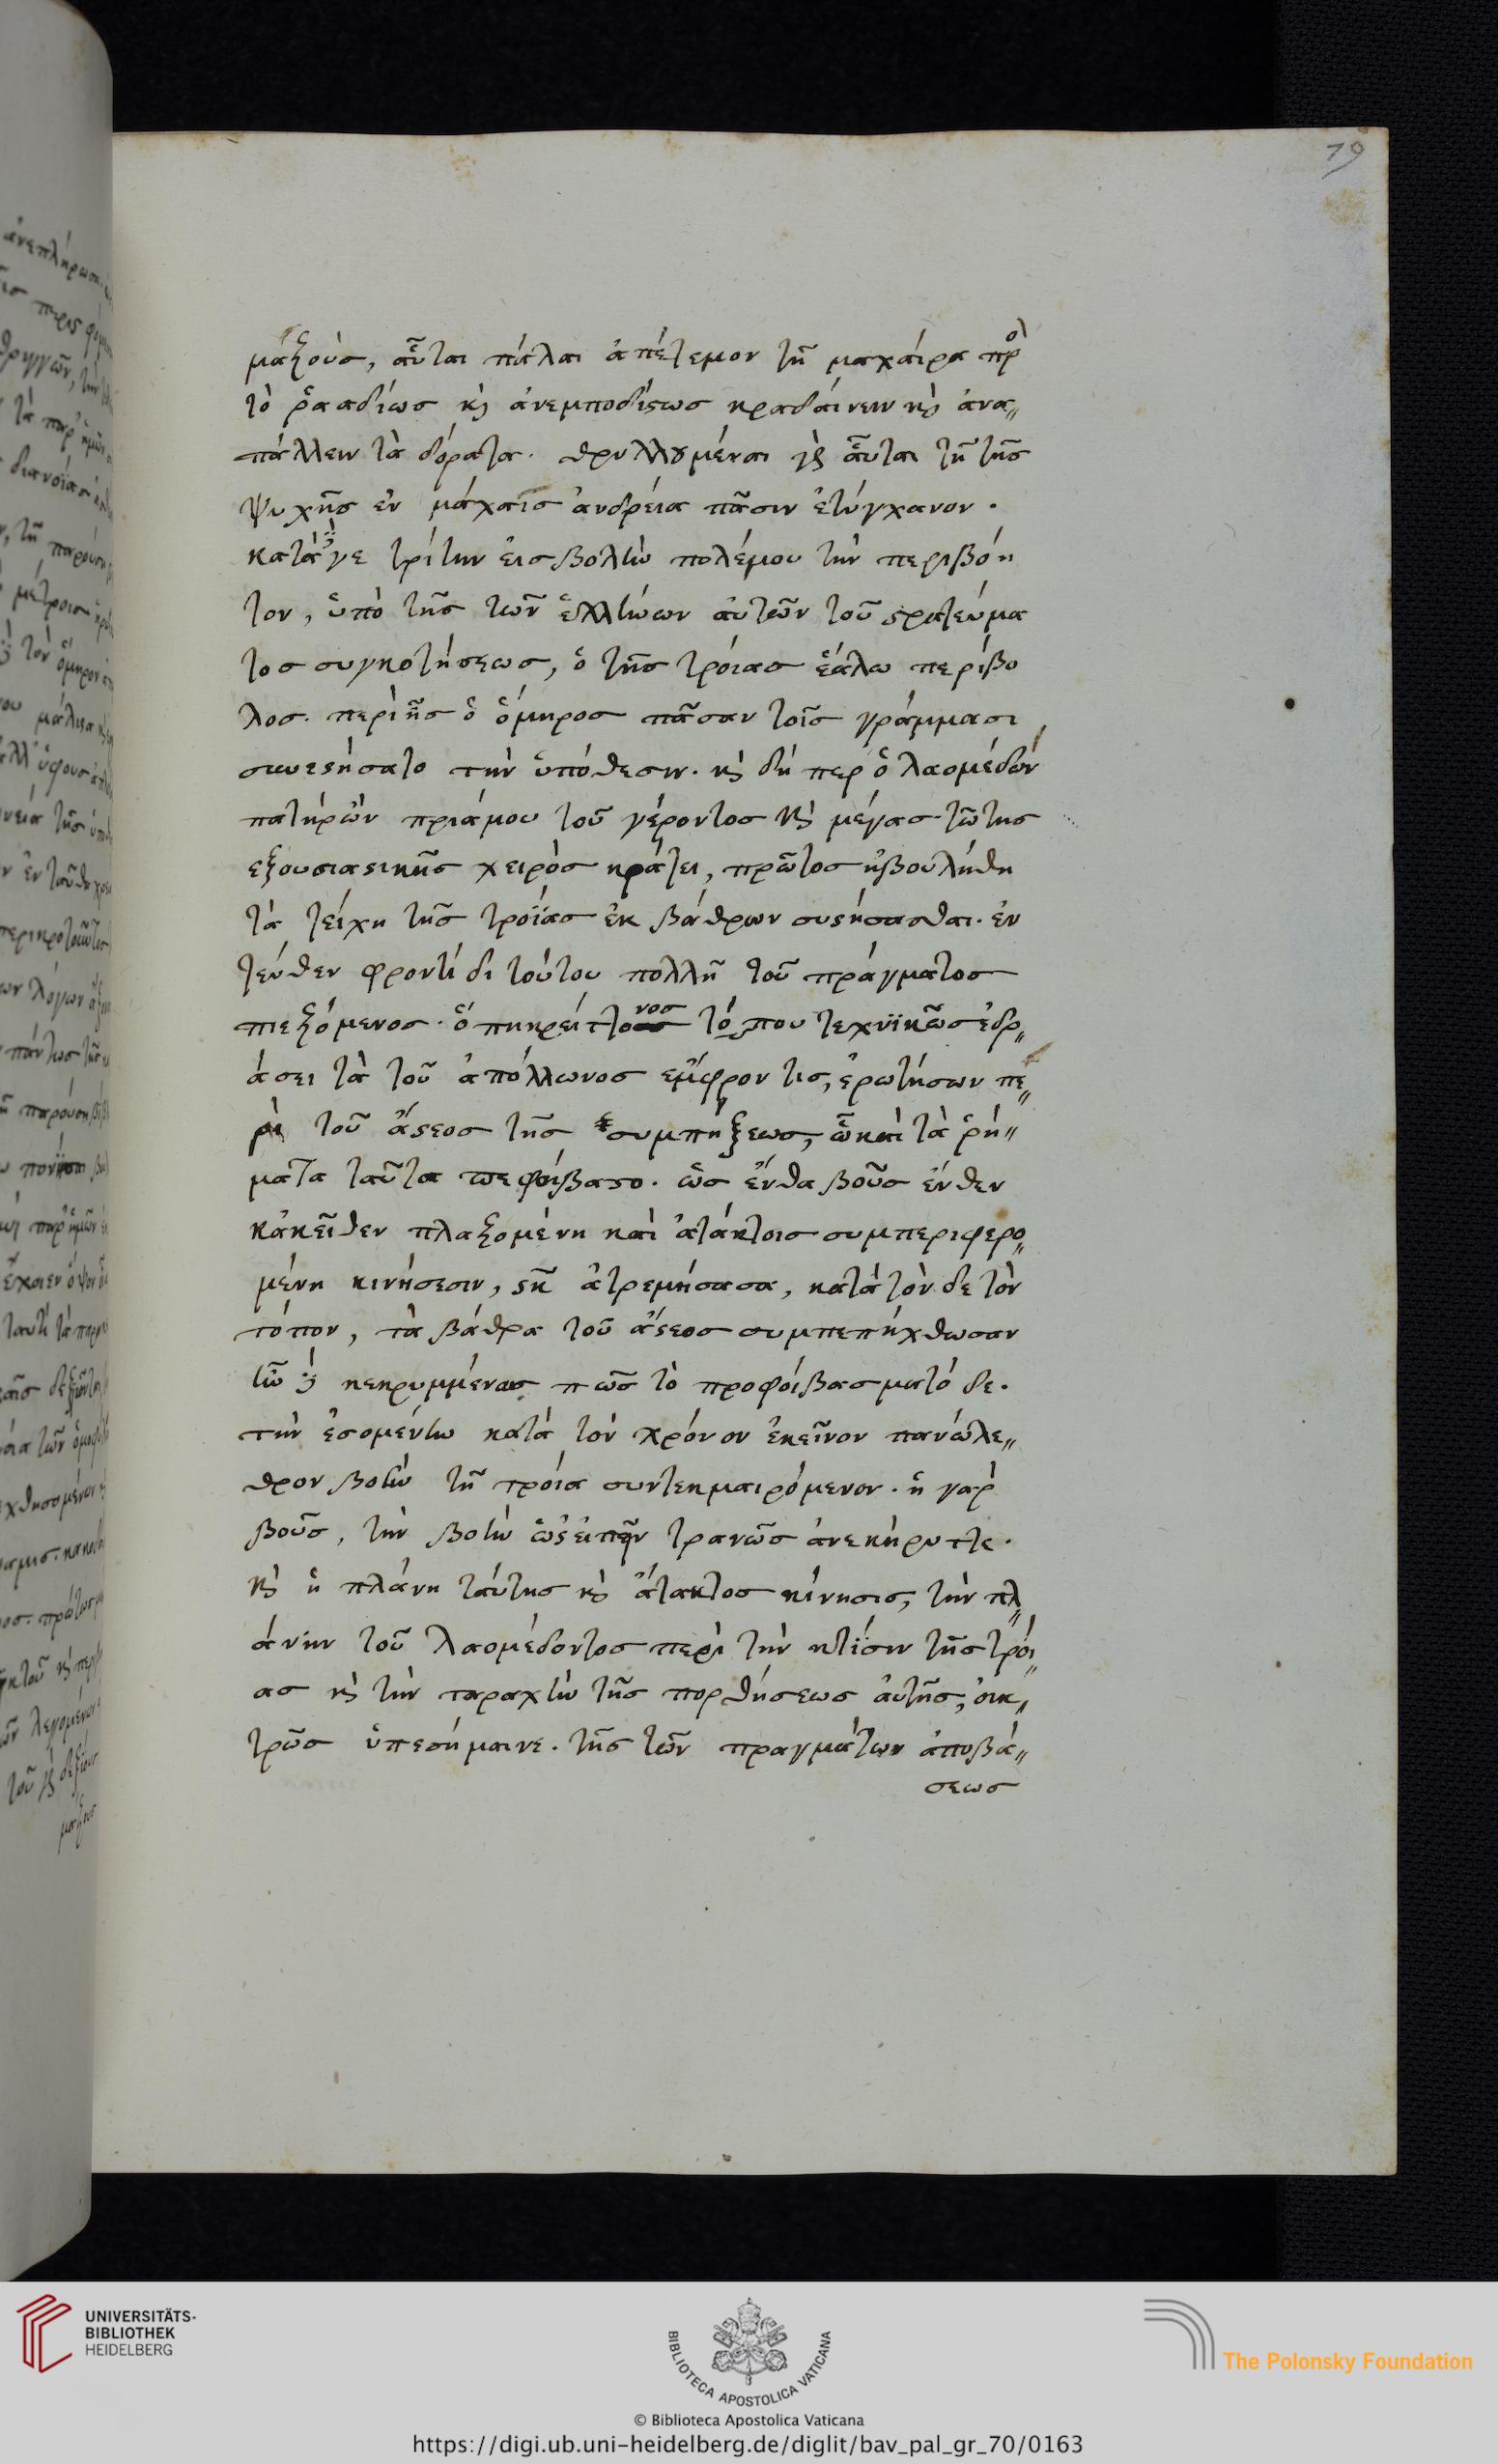 79
μαζοὺς, αὗται πάλαι ἀπέτεμον τῇ μαχαίρα πρὸ
τὸ ῥααδίως κὶ ἀνεμποδίστως κραδαίνειν κὶ ἀνα〃
πάλλειν τὰ δόρατα. θρυλλουμέναι γὰρ αὗται τῇ τῆς
ψυχῆς ἐν μάχαις ἀνδρεία πᾶσιν ἐτύγχανον.
κατὰ γε τρίτην εἰσβολὴν πολέμου τὴν περιβόη
τον, ὑπὸ τῆς τῶν ἑλλήνων αὐτῶν τοῦ στρατεύμα
τος συγκοτήσεως, ὁ τῆς τρόιας ἑάλω περίβο
λος. περὶ ἧς ὁ ὅμηρος πᾶσαν τοῖς γράμμασι
συνεστήσατο τὴν ὑπόθεσιν. κὶ δή περ ὁ λαομέδων
πατὴρ ὢν πριάμου τοῦ γέροντος κὶ μέγας τῶ της
εξουσιαστικῆς χειρὸς κράτει, πρῶτος ἠβουλήθη
τὰ τείχη τῆς τροΐας ἐκ βάθρων συστήσασθαι. ἐν
τεύθεν φροντίδι τούτου πολλῆ τοῦ πράγματος
πιεζόμενος. ὅπη κρείττονος τόπου τεχνϊκῶς ἐδρ〃
άσει τὰ τοῦ ἀπόλλωνος ἔμφροντις, ἐρωτήσων πε〃
ρὶ τοῦ ἄστεος τῆς συμπήξεως, ὧ καὶ τὰ ῥή〃
ματα ταῦτα πεφοίβαστο. ὡς ἔνθα βοῦς ἔνθεν
κἀκεῖθεν πλαζομένη καὶ ἀτάκτοις συμπεριφερο〃
μένη κινήσεσιν, στῆ ἀτρεμήσασα, κατὰ τὸν δε τὸν
τόπον, τὰ βάθρα τοῦ ἄστεος συμπεπήχθωσαν
κεκρυμμένως πῶς τὸ προφοίβασμα τό δε.
τὴν ἐσομένην κατὰ τὸν χρόνον ἐκεῖνον πανώλε〃
θρον βοὴν τῇ τρόια συντεκμαιρόμενον. ἡ γὰρ
βοῦς, τὴν βοὴν ὡς εἰπεῖν τρανῶς ἀνεκήρυττε.
κὶ ἡ πλάνη ταύτης κὶ ἄτακτος κίνησις, τὴν πλ〃
άνην τοῦ λαομέδοντος περὶ τὴν κτίσιν τῆς τρόι〃
ας κὶ τὴν ταραχὴν τῆς πορθήσεως αὐτῆς, οἰκ〃
τρῶς ὑπεσήμαινε. τῆς τῶν πραγμάτων ἀποβά〃
σεως
UNIVERSITÄTS-
BIBLIOTHEK
HEIDELBERG
BIBLIOTECA APOSTOLICA VATICANA
The Polonsky Foundation
© Biblioteca Apostolica Vaticana
https://digi.ub.uni-heidelberg.de/diglit/bav_pal_gr_70/0163